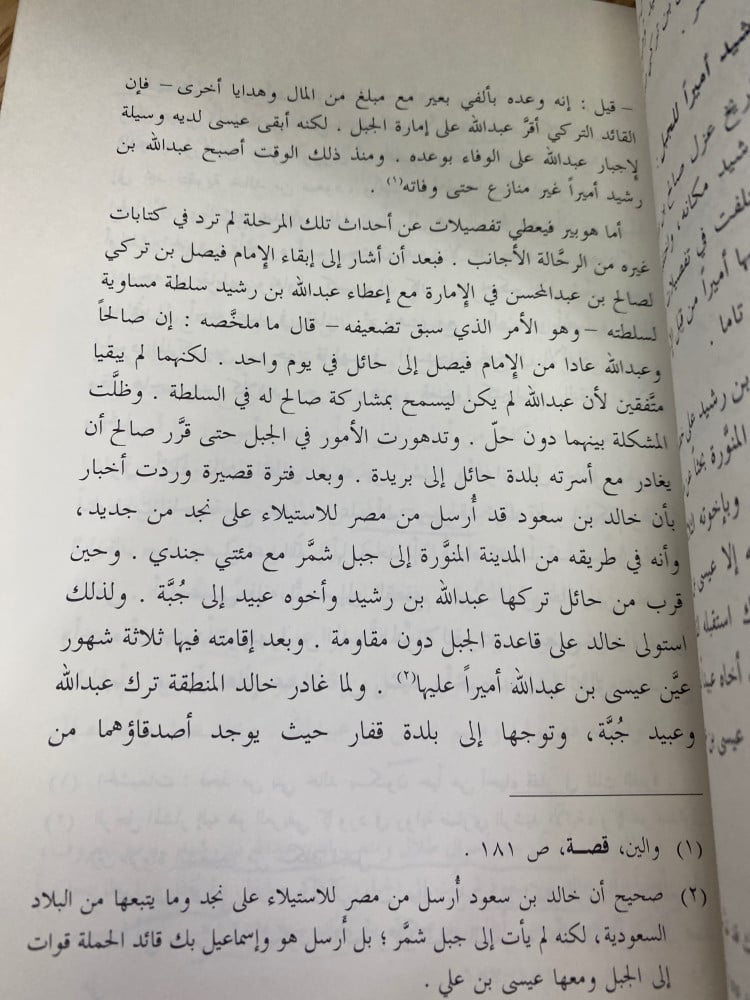 – قيل : إنه وعده بألفي بعير مع مبلغ من المال وهدايا أخرى – فإن
القائد التركي أقرَّ عبدالله على إمارة الجبل . لكنه أبقى عيسى لديه وسيلة
لإجبار عبدالله على الوفاء بوعده . ومنذ ذلك الوقت أصبح عبدالله بن
رشيد أميراً غير منازع حتى وفاته(١) .
أما هوبير فيعطي تفصيلات عن أحداث تلك المرحلة لم ترد في كتابات
غيره من الرحَّالة الأجانب . فبعد أن أشار إلى إبقاء الإمام فيصل بن تركي
لصالح بن عبدالمحسن في الإمارة مع إعطاء عبدالله بن رشيد سلطة مساوية
لسلطته – وهو الأمر الذي سبق تضعيفه – قال ما ملخَّصه : إن صالحاً
وعبدالله عادا من الإمام فيصل إلى حائل في يوم واحد . لكنهما لم يبقيا
متَّفقين لأن عبدالله لم يكن ليسمح بمشاركة صالح له في السلطة . وظلَّت
المشكلة بينهما دون حلّ . وتدهورت الأمور في الجبل حتى قرَّر صالح أن
يغادر مع أسرته بلدة حائل إلى بريدة . وبعد فترة قصيرة وردت أخبار
بأن خالد بن سعود قد أُرسل من مصر للاستيلاء على نجد من جديد،
وأنه في طريقه من المدينة المنوَّرة إلى جبل شمَّر مع مئتي جندي . وحين
قرب من حائل تركها عبدالله بن رشيد وأخوه عبيد إلى جُبَّة . ولذلك
استولى خالد على قاعدة الجبل دون مقاومة . وبعد إقامته فيها ثلاثة شهور
عيَّن عيسى بن عبدالله أميراً عليها(٢) . ولما غادر خالد المنطقة ترك عبدالله
وعبيد جُبَّة، وتوجها إلى بلدة قفار حيث يوجد أصدقاؤهما من
(١) والين، قصة، ص ١٨١ .
(٢) صحيح أن خالد بن سعود أُرسل من مصر للاستيلاء على نجد وما يتبعها من البلاد
السعودية، لكنه لم يأت إلى جبل شمَّر ؛ بل أُرسل هو وإسماعيل بك قائد الحملة قوات
إلى الجبل ومعها عيسى بن علي .